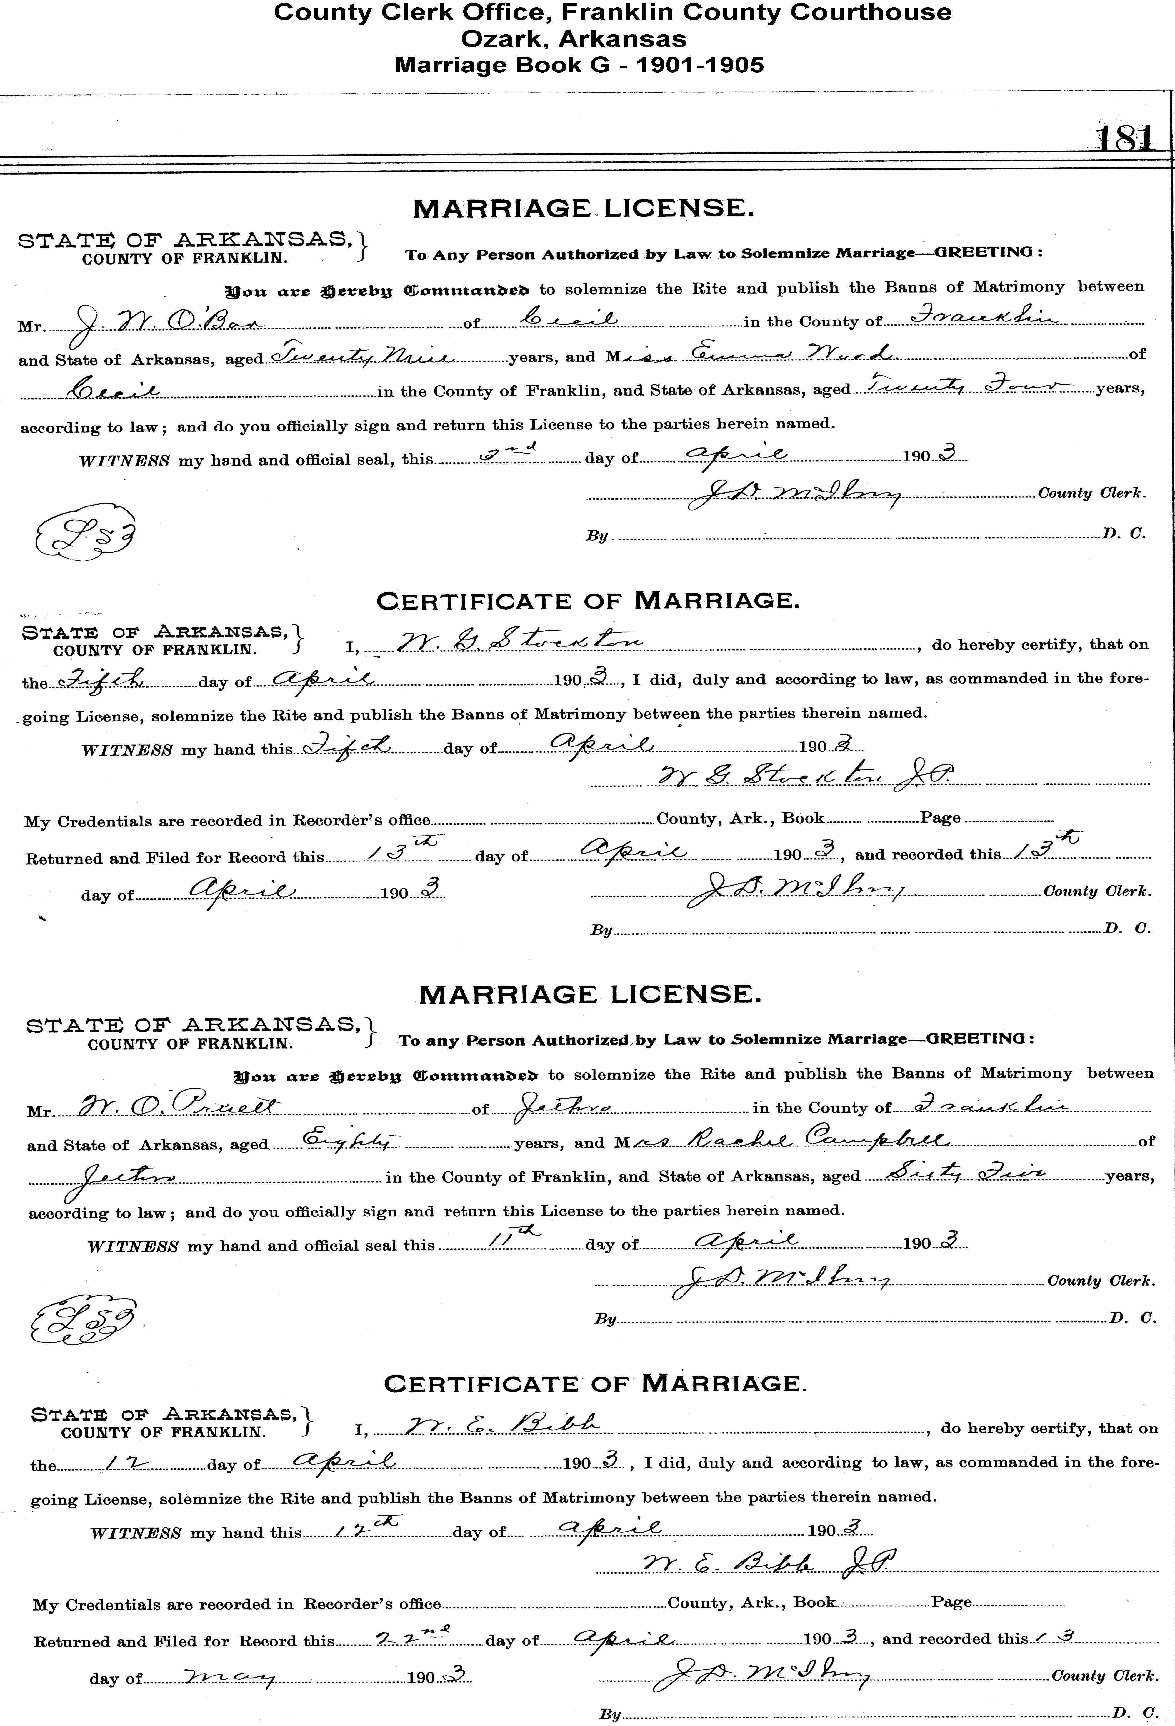 County Clerk Office, Franklin County Courthouse
Ozark, Arkansas
Marriage Book G - 1901-1905
181
MARRIAGE LICENSE.
STATE OF ARKANSAS,
COUNTY OF FRANKLIN.
To Any Person Authorized by Law to Solemnize Marriage—GREETING:
You are Hereby Commanded to solemnize the Rite and publish the Banns of Matrimony between
Mr. J. W. O'Bar of Cecil in the County of Franklin
and State of Arkansas, aged Twenty Nine years, and Miss Emma Ward of
Cecil in the County of Franklin, and State of Arkansas, aged Twenty Four years,
according to law; and do you officially sign and return this License to the parties herein named.
WITNESS my hand and official seal, this 2nd day of April 1903
J D. McIlroy County Clerk.
LS
By D. C.
CERTIFICATE OF MARRIAGE.
STATE OF ARKANSAS,
COUNTY OF FRANKLIN.
I, W. G. Stockton, do hereby certify, that on
the Fifth day of April 1903, I did, duly and according to law, as commanded in the fore-
going License, solemnize the Rite and publish the Banns of Matrimony between the parties therein named.
WITNESS my hand this Fifth day of April 1903
W G. Stockton J.P.
My Credentials are recorded in Recorder's office County, Ark., Book Page
Returned and Filed for Record this 13th day of April 1903, and recorded this 13th
day of April 1903 J D. McIlroy County Clerk.
By D. C.
MARRIAGE LICENSE.
STATE OF ARKANSAS,
COUNTY OF FRANKLIN.
To any Person Authorized by Law to Solemnize Marriage—GREETING:
You are Hereby Commanded to solemnize the Rite and publish the Banns of Matrimony between
Mr. W. O. Pruett of Jethro in the County of Franklin
and State of Arkansas, aged Eighty years, and Mrs Rachel Campbell of
Jethro in the County of Franklin, and State of Arkansas, aged Sixty Five years,
according to law; and do you officially sign and return this License to the parties herein named.
WITNESS my hand and official seal this 11th day of April 1903
J D. McIlroy County Clerk.
LS
By D. C.
CERTIFICATE OF MARRIAGE.
STATE OF ARKANSAS,
COUNTY OF FRANKLIN.
I, W. E. Bibb, do hereby certify, that on
the 12 day of April 1903, I did, duly and according to law, as commanded in the fore-
going License, solemnize the Rite and publish the Banns of Matrimony between the parties therein named.
WITNESS my hand this 12th day of April 1903
W. E. Bibb J.P.
My Credentials are recorded in Recorder's office County, Ark., Book Page
Returned and Filed for Record this 22nd day of April 1903, and recorded this 13
day of May 1903 J D. McIlroy County Clerk.
By D. C.